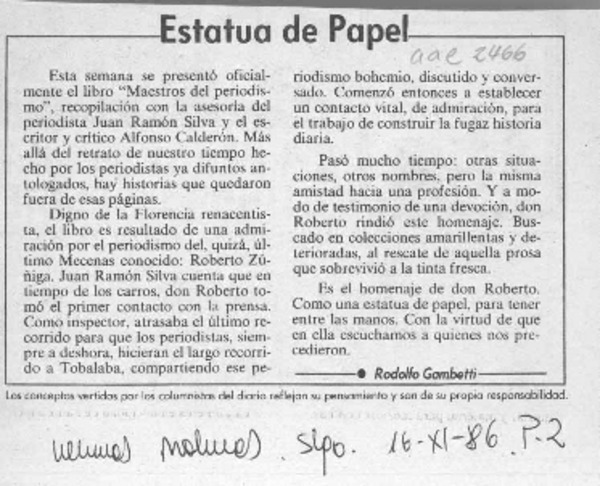 Estatua de Papel
aae 2466
Esta semana se presentó oficial-
mente el libro "Maestros del periodis-
mo", recopilación con la asesoría del
periodista Juan Ramón Silva y el es-
critor y crítico Alfonso Calderón. Más
allá del retrato de nuestro tiempo he-
cho por los periodistas ya difuntos an-
tologados, hay historias que quedaron
fuera de esas páginas.
Digno de la Florencia renacentis-
ta, el libro es resultado de una admi-
ración por el periodismo del, quizá, úl-
timo Mecenas conocido: Roberto Zú-
ñiga. Juan Ramón Silva cuenta que en
tiempo de los carros, don Roberto to-
mó el primer contacto con la prensa.
Como inspector, atrasaba el último re-
corrido para que los periodistas, siem-
pre a deshora, hicieran el largo recorri-
do a Tobalaba, compartiendo ese pe-
riodismo bohemio, discutido y conver-
sado. Comenzó entonces a establecer
un contacto vital, de admiración, para
el trabajo de construir la fugaz historia
diaria.
Pasó mucho tiempo: otras situa-
ciones, otros nombres, pero la misma
amistad hacia una profesión. Y a mo-
do de testimonio de una devoción, don
Roberto rindió este homenaje. Bus-
cado en colecciones amarillentas y de-
terioradas, al rescate de aquella prosa
que sobrevivió a la tinta fresca.
Es el homenaje de don Roberto.
Como una estatua de papel, para tener
entre las manos. Con la virtud de que
en ella escuchamos a quienes nos pre-
cedieron.
● Rodolfo Gambetti
Los conceptos vertidos por los columnistas del diario reflejan su pensamiento y son de su propia responsabilidad.
Stgo. 16-XI-86 P.2